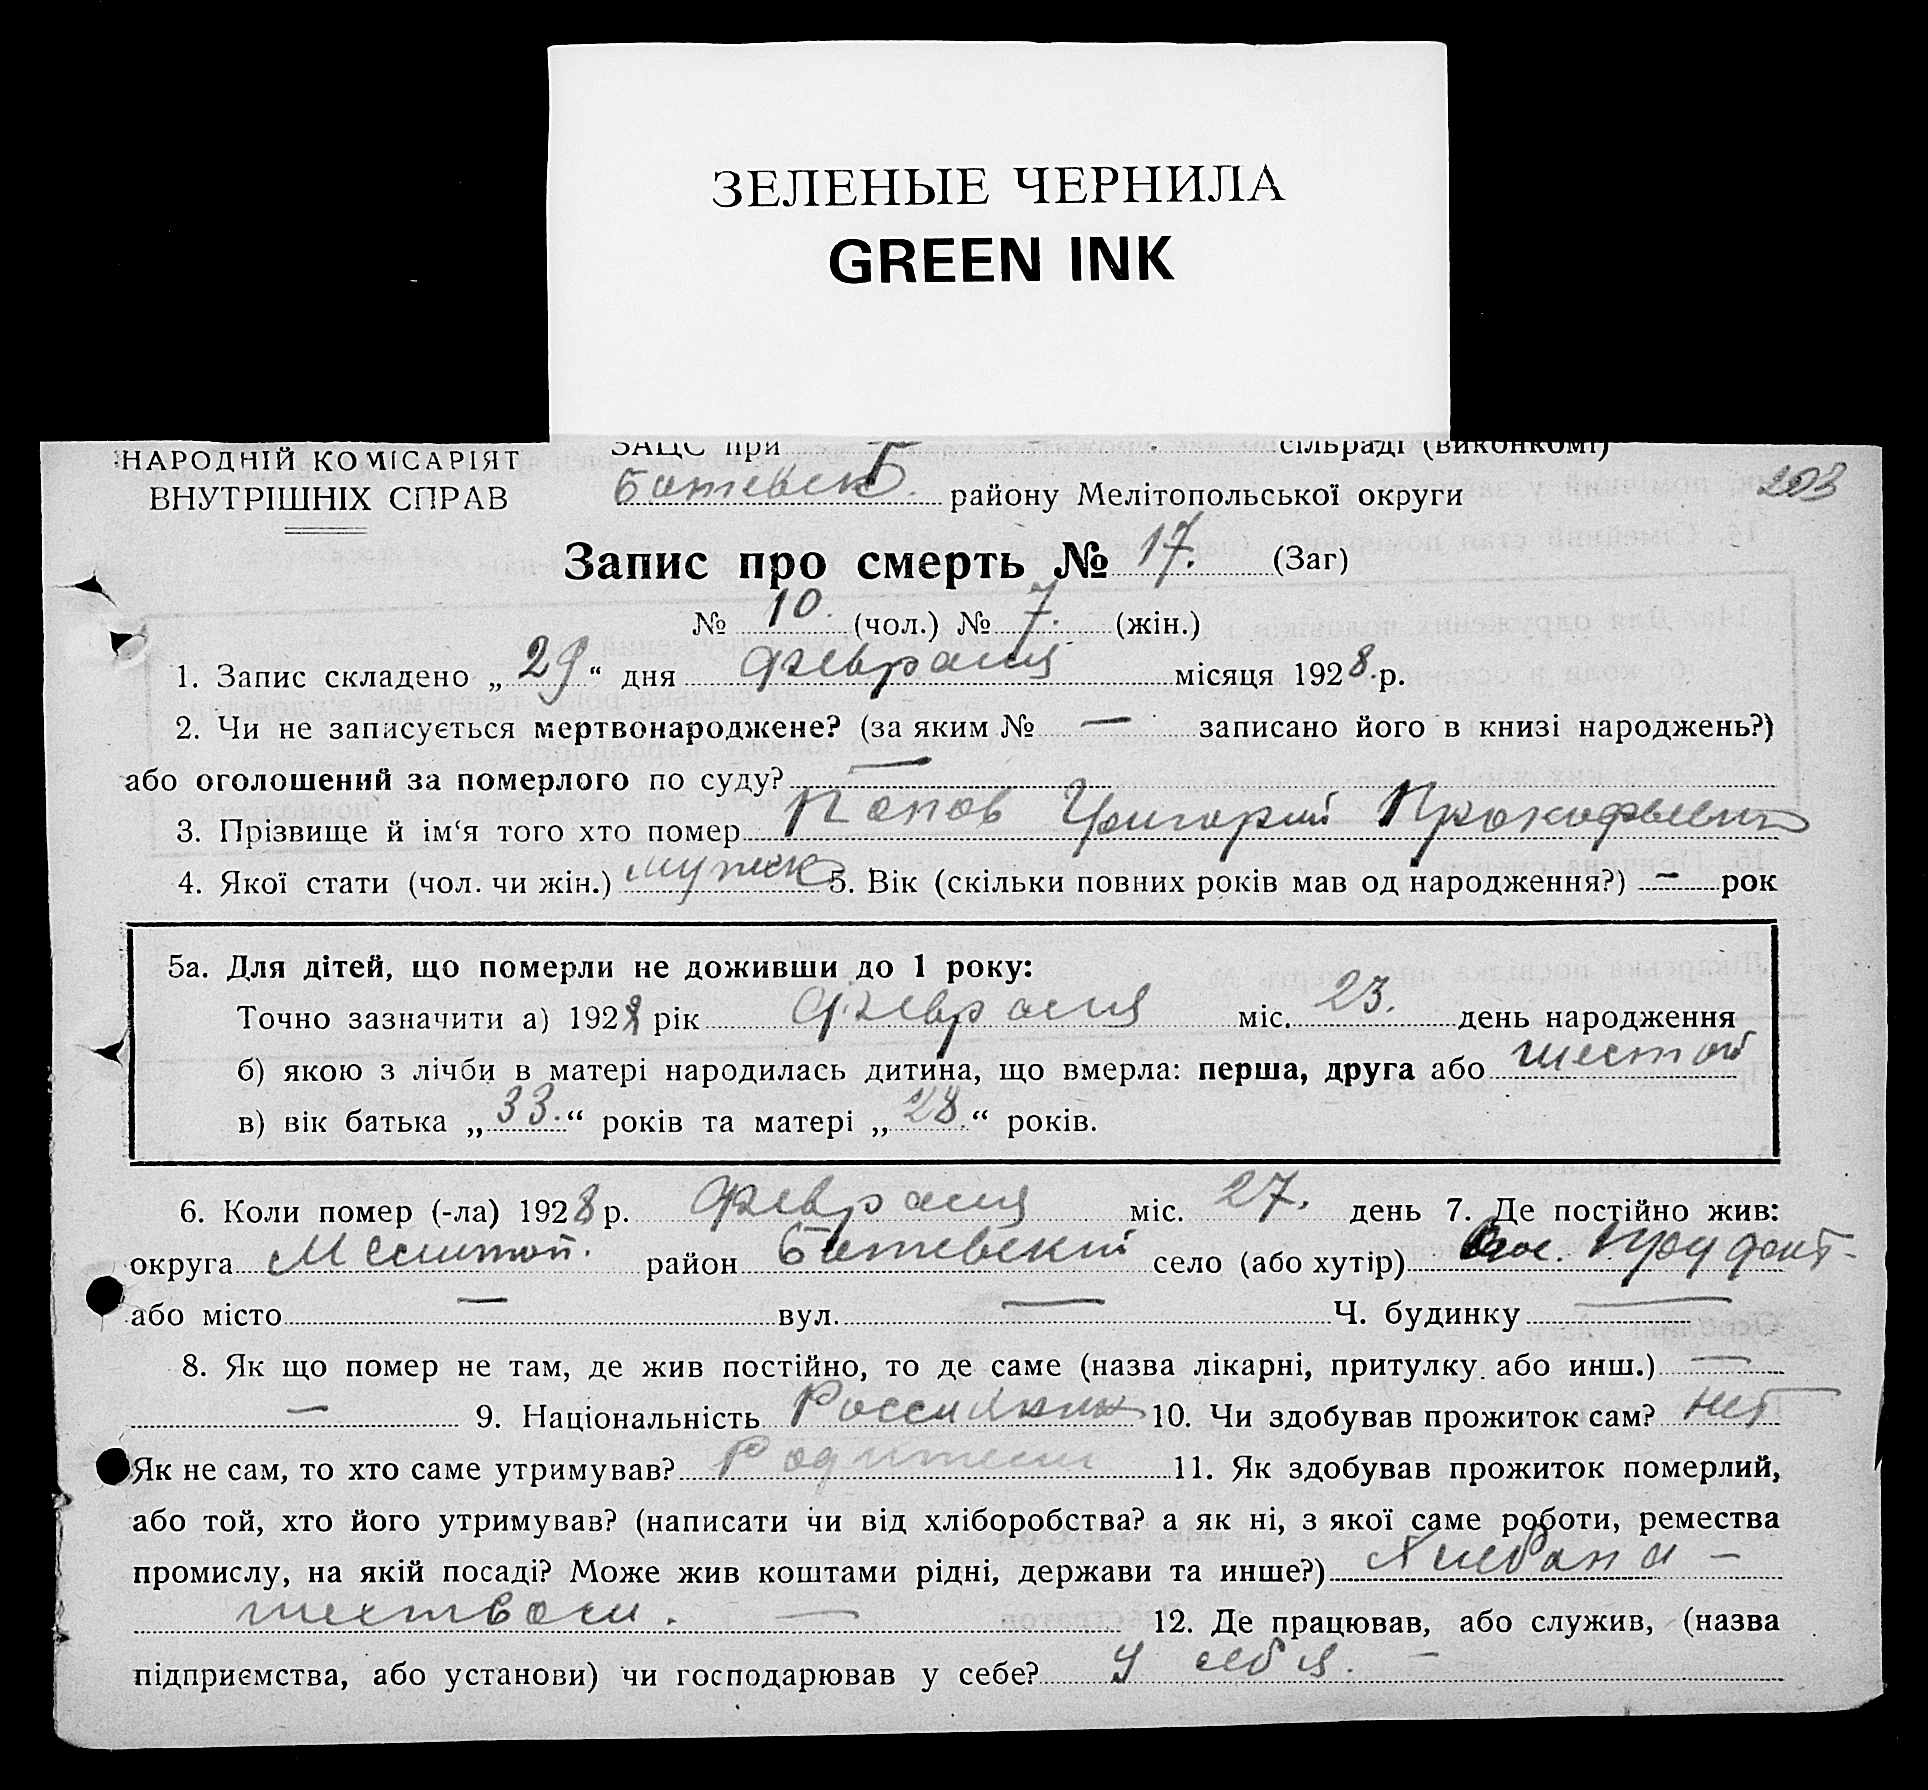 ЗЕЛЕНЫЕ ЧЕРНИЛА
GREEN INK
НАРОДНІЙ КОМІСАРІЯТ
ВНУТРІШНІХ СПРАВ
ЗАЦС при сільраді (виконкомі)
Ботевск. району Мелітопольської округи
203
Запис про смерть № 17. (Заг)
№ 10. (чол.) № 7. (жін.)
1. Запис складено „ 29 “ дня февраля місяця 1928.р.
2. Чи не записується мертвонароджене? (за яким № — записано його в книзі народжень?)
або оголошений за померлого по суду? —
3. Прізвище й ім‘я того хто помер Попов Григорий Прокофьевич
4. Якої стати (чол. чи жін.) мужск 5. Вік (скільки повних років мав од народження?) — рок
5а. Для дітей, що померли не доживши до 1 року:
Точно зазначити а) 1928 рік февраля міс. 23. день народження
б) якою з лічби в матері народилась дитина, що вмерла: перша, друга або шестой
в) вік батька „ 33. “ років та матері „ 28. “ років.
6. Коли помер (-ла) 1928 р. февраля міс. 27. день 7. Де постійно жив:
округа Мелитоп. район Ботевский село (або хутір)
або місто — вул. — Ч. будинку —
8. Як що помер не там, де жив постійно, то де саме (назва лікарні, притулку або инш.) —
— 9. Національність 10. Чи здобував прожиток сам? нет
Як не сам, то хто саме утримував? Родители 11. Як здобував прожиток померлий,
або той, хто його утримував? (написати чи від хліборобства? а як ні, з якої саме роботи, ремества
промислу, на якій посаді? Може жив коштами рідні, держави та инше?) Хлебопа –
шеством. — 12. Де працював, або служив, (назва
підприємства, або установи) чи господарював у себе? У себя. –